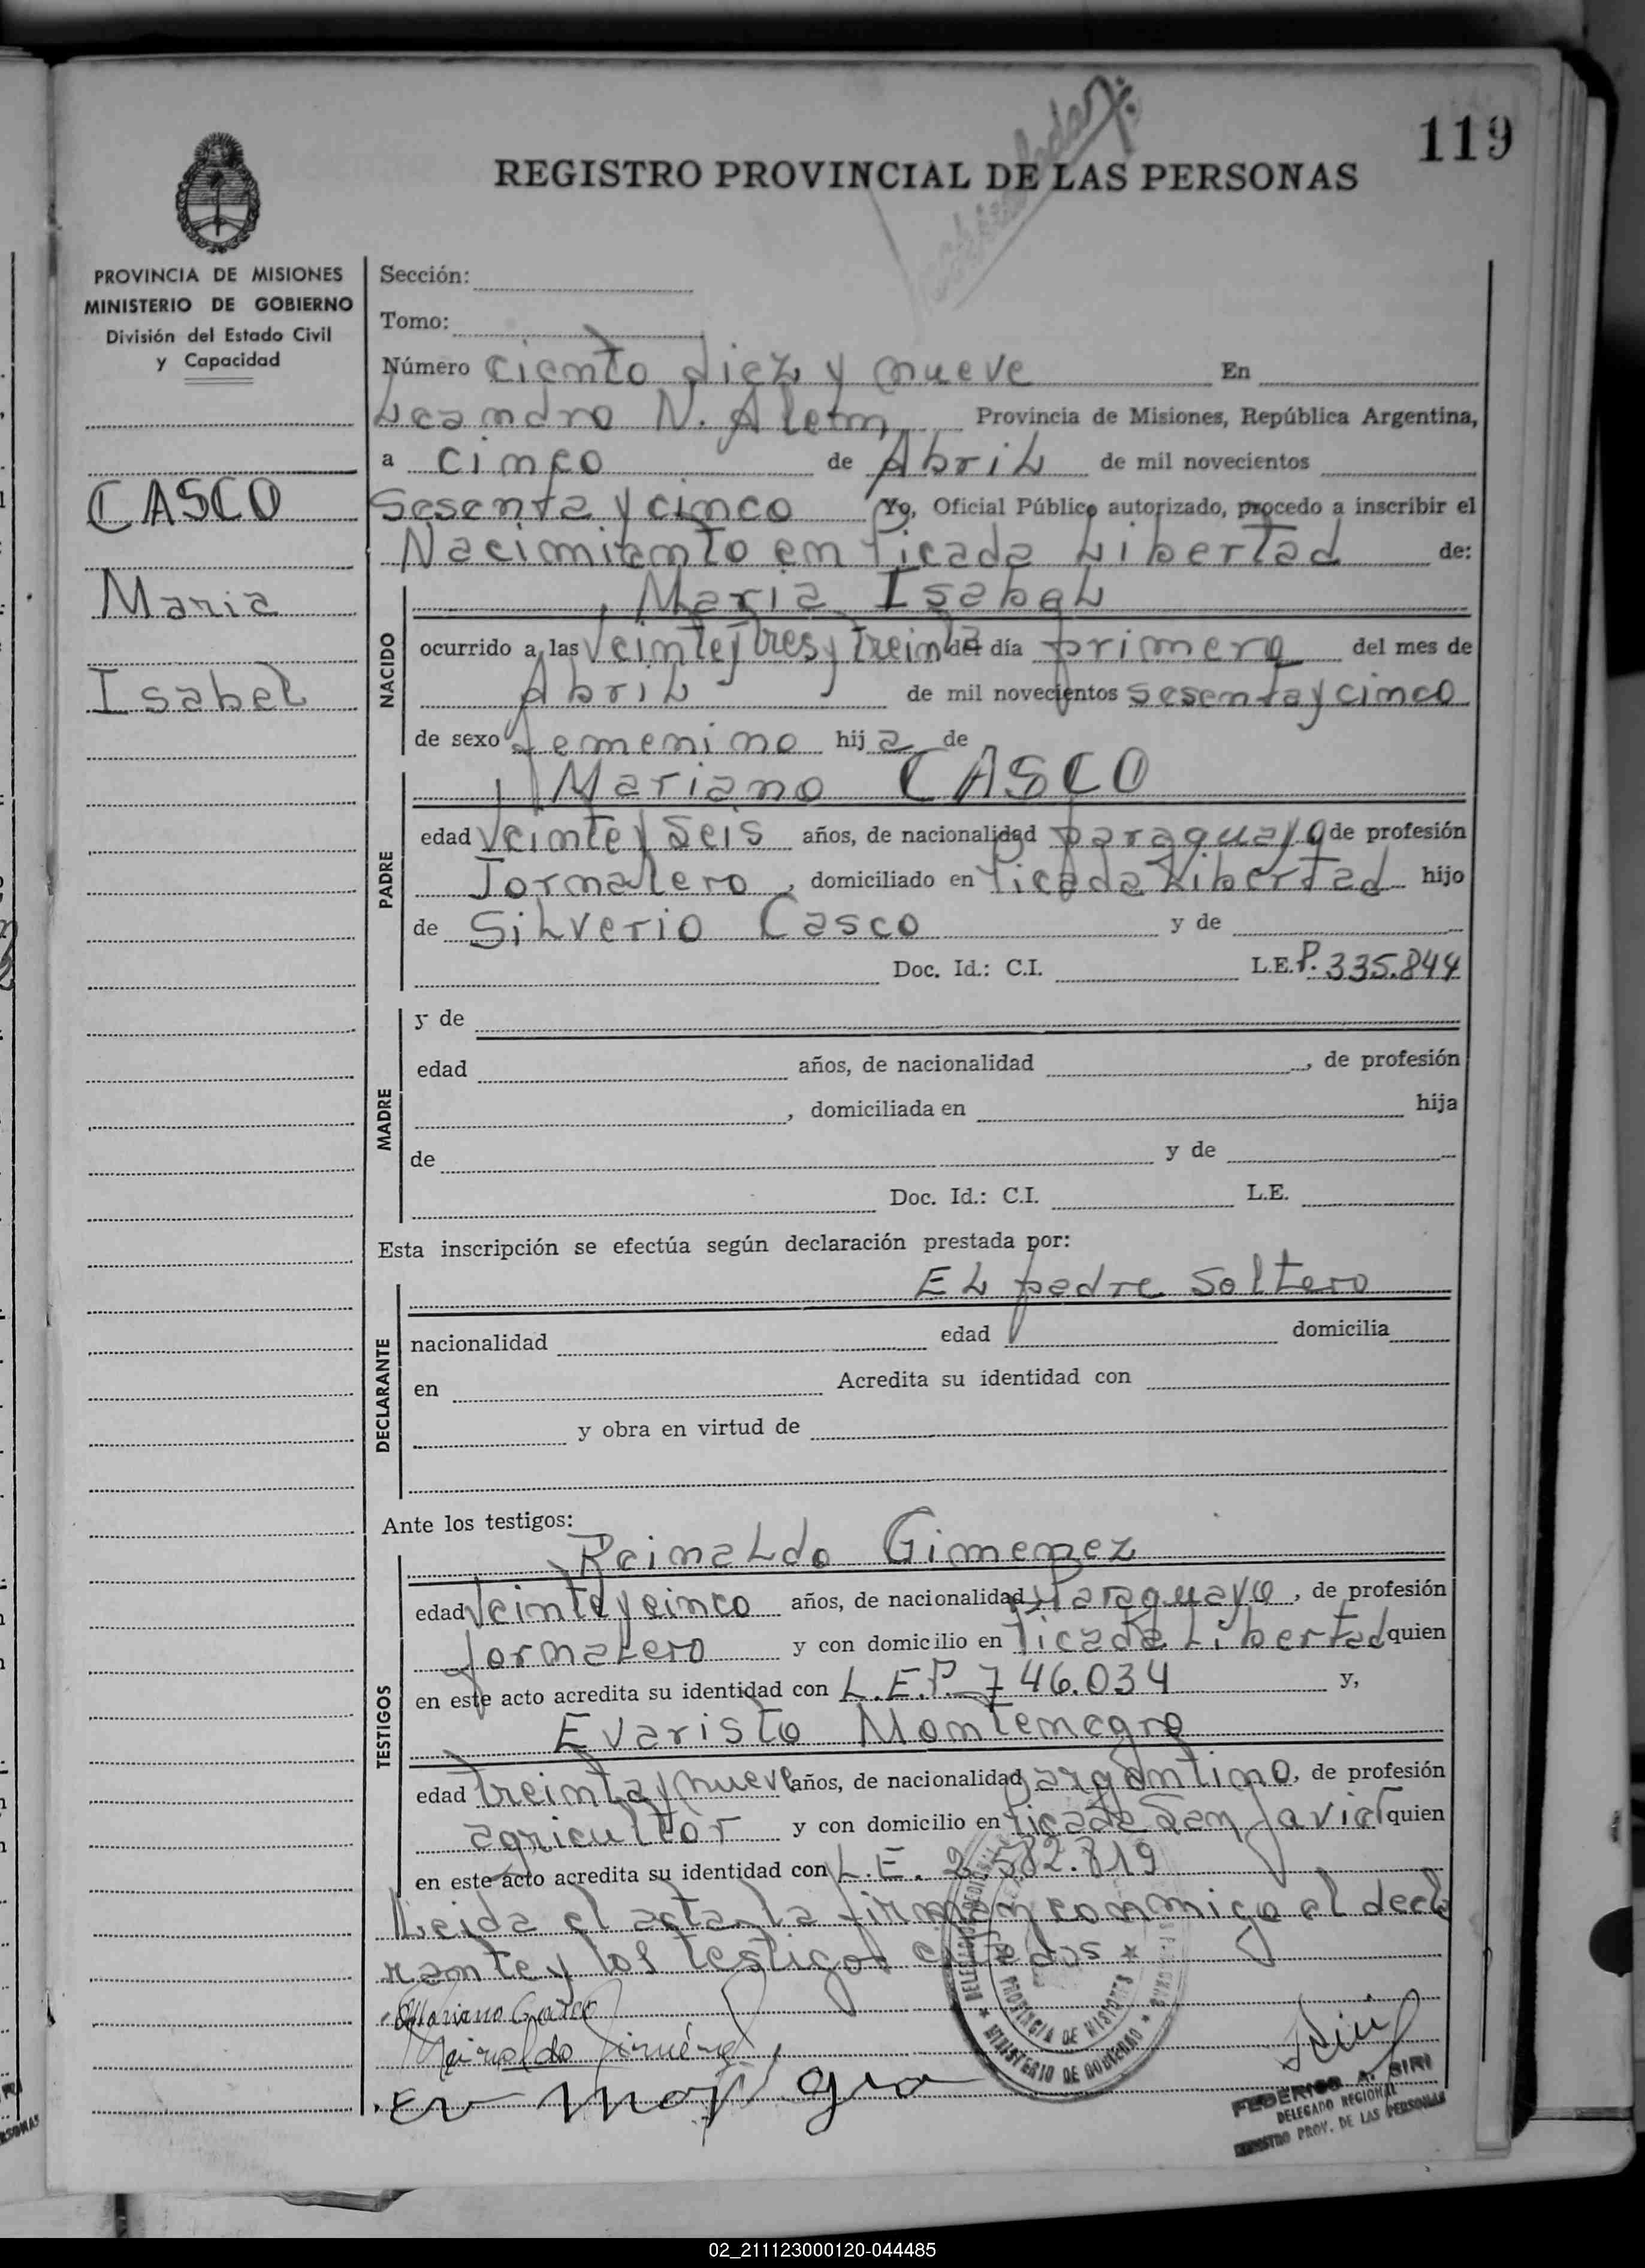 119
REGISTRO PROVINCIAL DE LAS PERSONAS
PROVINCIA DE MISIONES
MINISTERIO DE GOBIERNO
División del Estado Civil
y Capacidad
CASCO
Maria
Isabel
Sección:
Tomo:
Número ciento diez y nueve En
Leandro N. Alem Provincia de Misiones, República Argentina,
a cinco de Abril de mil novecientos
Sesenta y cinco Yo, Oficial Público autorizado, procedo a inscribir el
Nacimiento en Picada Libertad de:
NACIDO
Maria Isabel
ocurrido a las Veinte y tres y treinta del día primero del mes de
Abril de mil novecientos sesenta y cinco
de sexo femenino hija de
PADRE
Mariano CASCO
edad Veinte y Seis años, de nacionalidad paraguayo de profesión
Jornalero, domiciliado en Picada Libertad hijo
de Silverio Casco y de
Doc. Id.: C.I. L.E. P. 335.844
MADRE
y de
edad años, de nacionalidad , de profesión
, domiciliada en hija
de y de
Doc. Id.: C.I. L.E.
Esta inscripción se efectúa según declaración prestada por:
DECLARANTE
El padre Soltero
nacionalidad edad domicilia
en Acredita su identidad con
y obra en virtud de
Ante los testigos:
TESTIGOS
Reinaldo Gimenez
edad Veinte y cinco años, de nacionalidad Paraguayo, de profesión
jornalero y con domicilio en Picada Libertad quien
en este acto acredita su identidad con L.E.P. 746.034 y,
Evaristo Montenegro
edad treinta y nueve años, de nacionalidad argentino, de profesión
agricultor y con domicilio en Picada San Javier quien
en este acto acredita su identidad con L.E. 2.582.819
Leida el acta la firman conmigo el decla
rante y los testigos citados
Mariano Casco
Reinaldo Jiménez
★ MINISTERIO DE GOBIERNO ★
PROVINCIA DE MISIONES
FEDERICO A. SIRI
DELEGADO REGIONAL
REGISTRO PROV. DE LAS PERSONAS
02_211123000120-044485